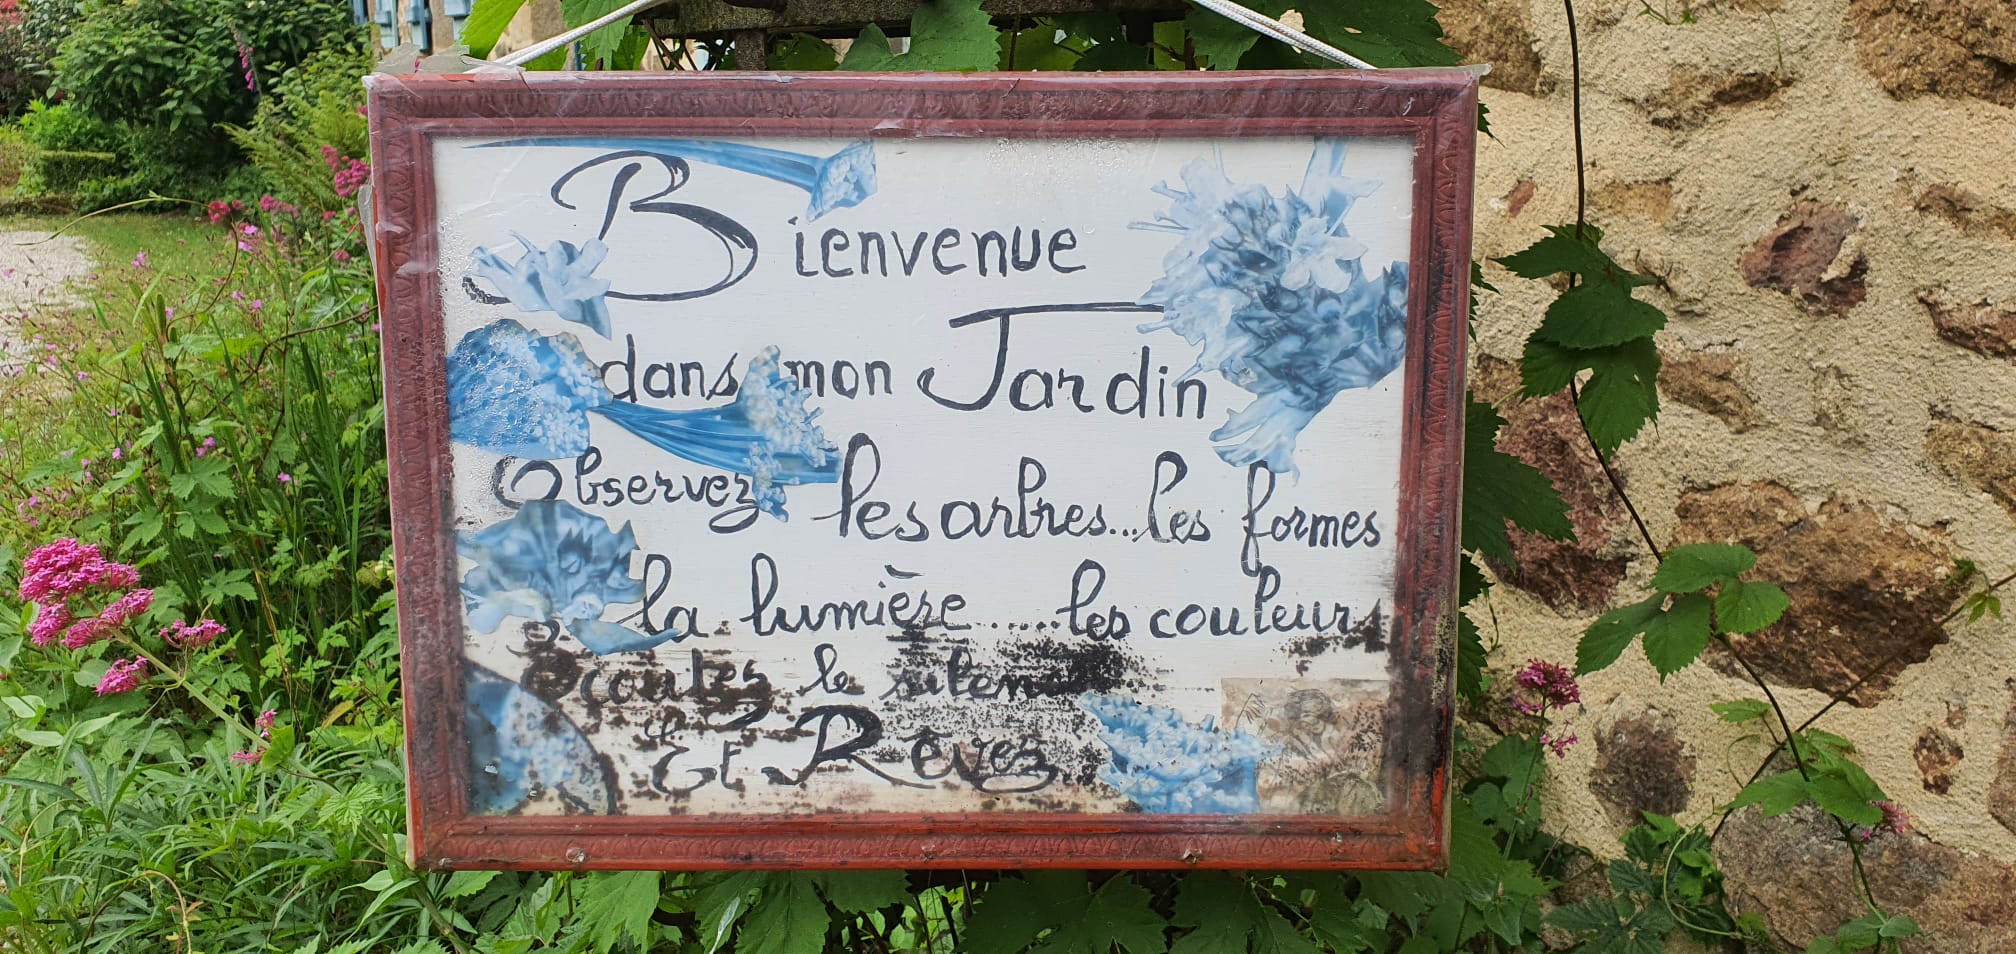 Bienvenue
dans mon Jardin
Observez les arbres...les formes
la lumière......les couleurs
Ecoutez le
Et Rêvez